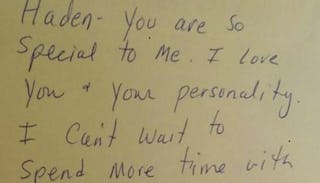 Haden- You are so
special to me. I love
you + your personality.
I can't wait to
spend more time with